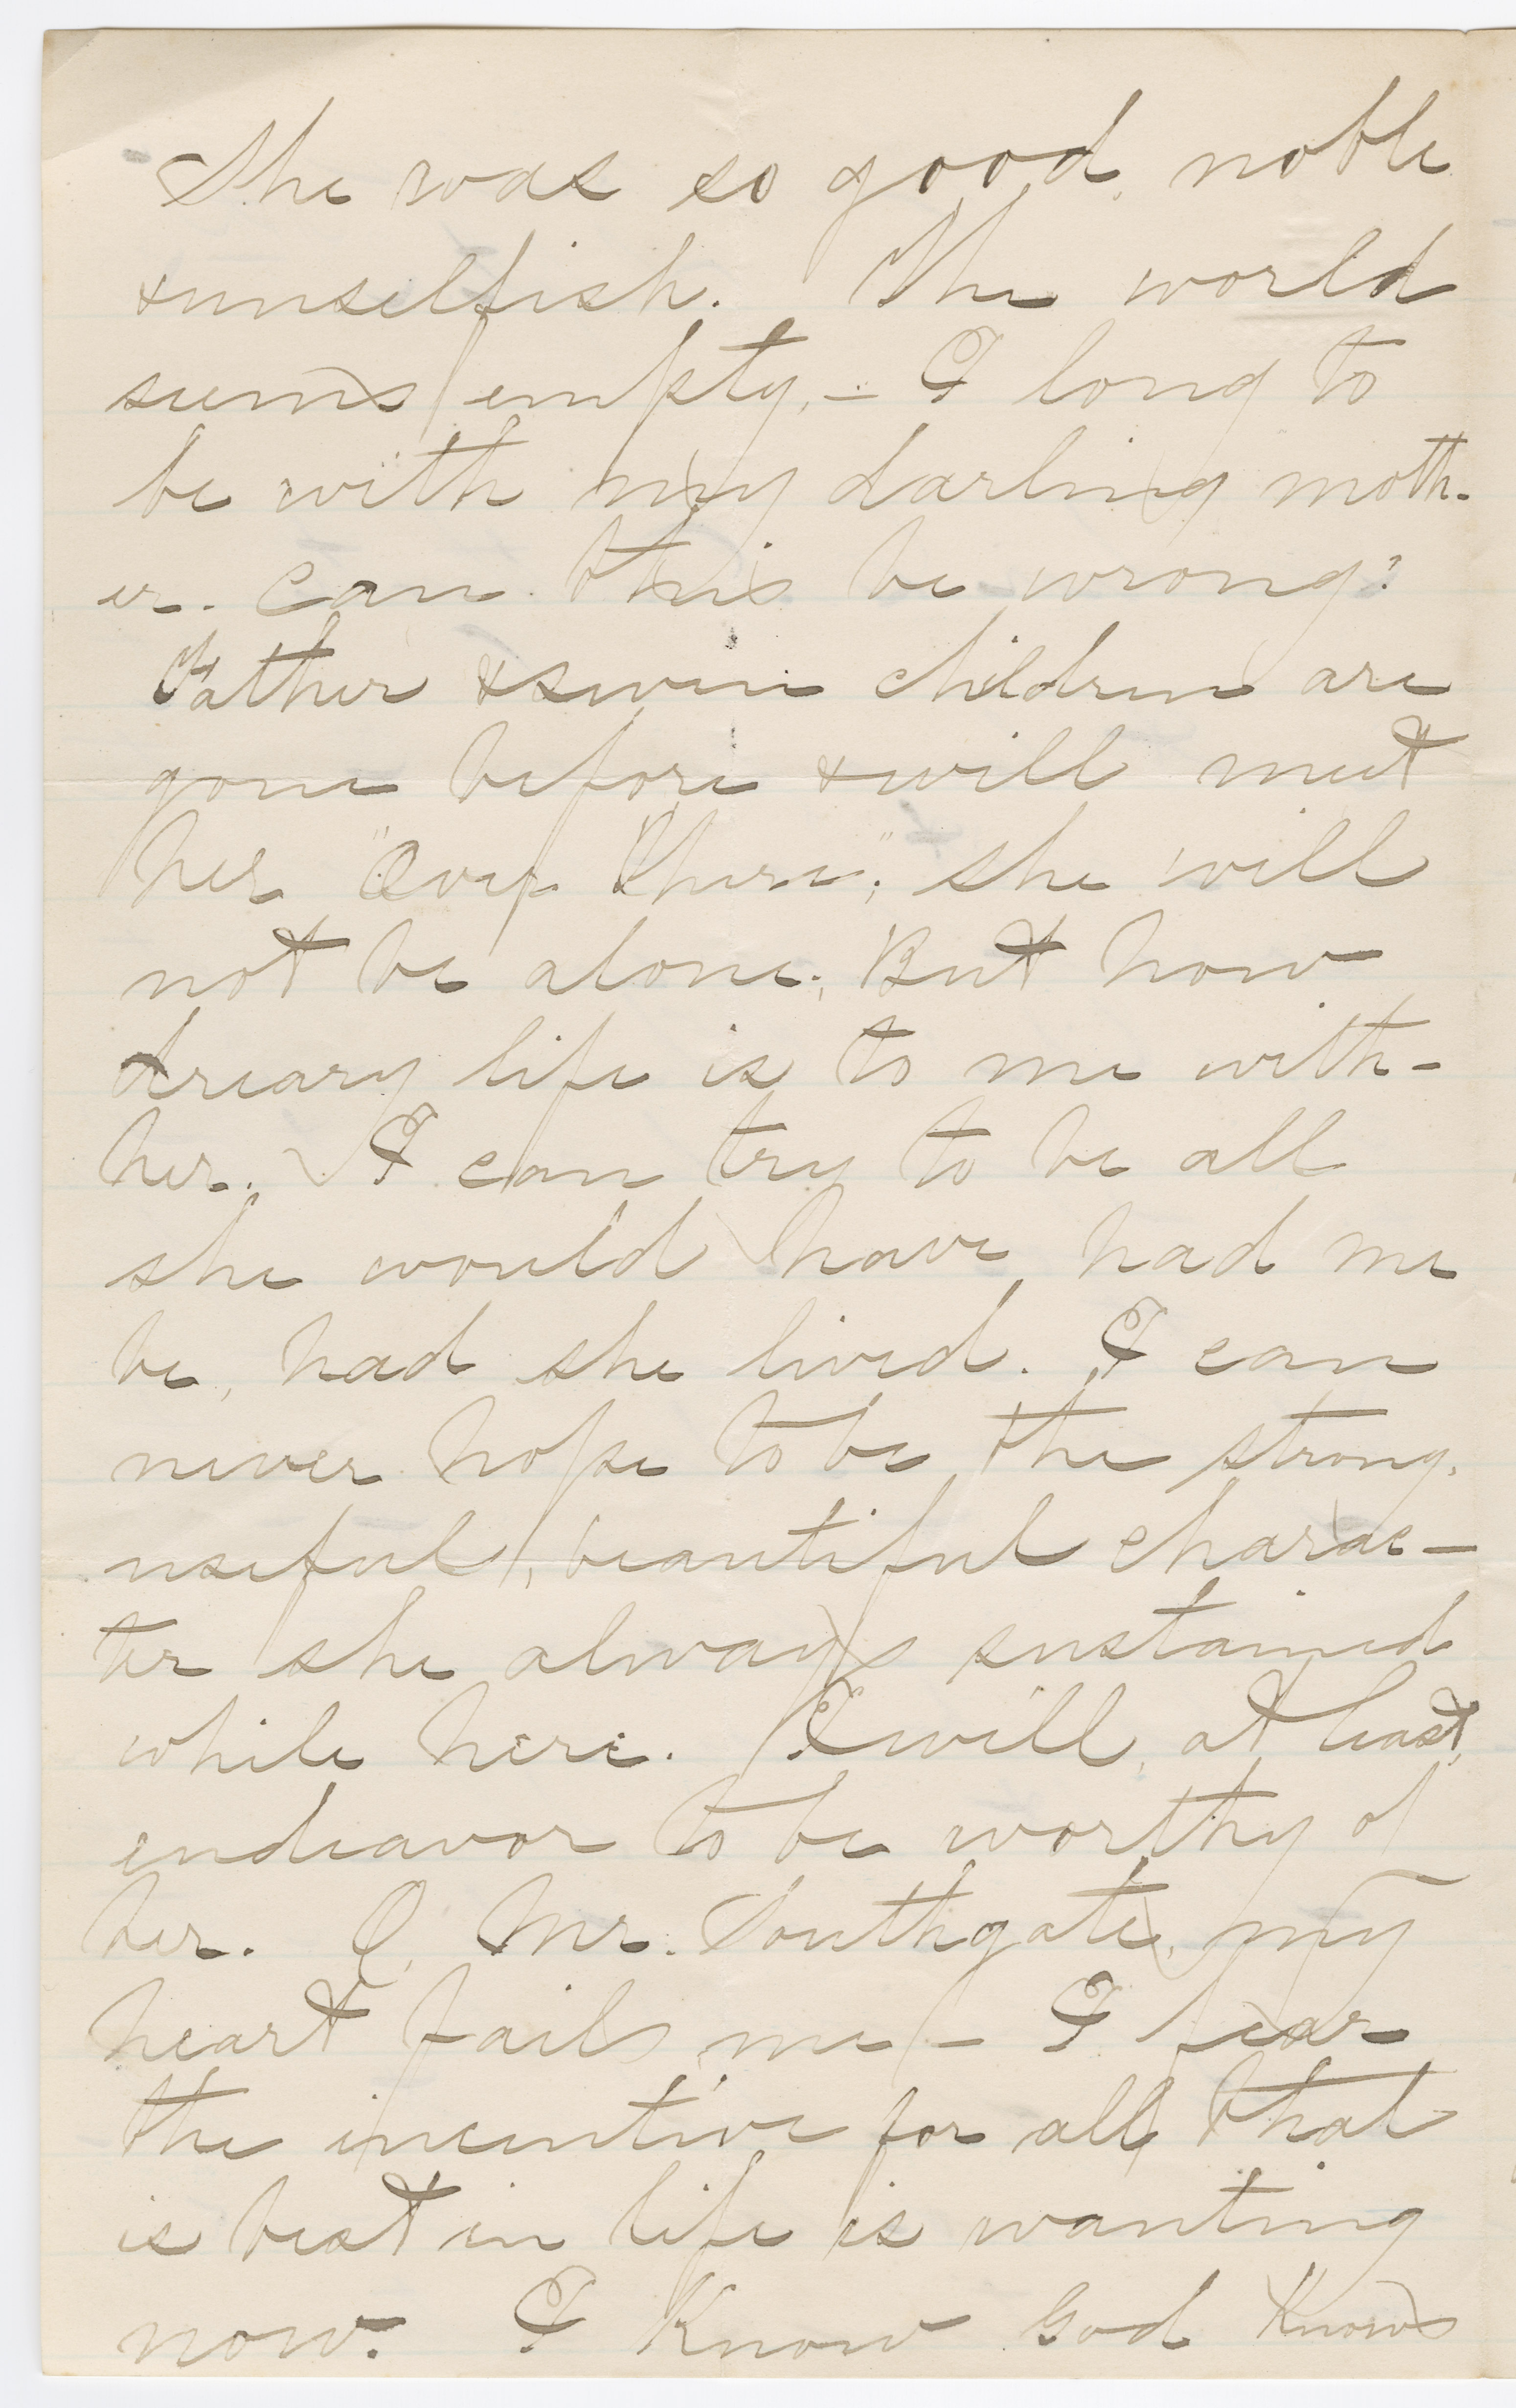 She was so good, noble
& unselfish. The world
seems empty, - I long to
be with my darling moth-
er. Can this be wrong?
Father & seven children are
gone before & will meet
her "Over There", she will
not be alone; But how
dreary life is to me with-
her. I can try to be all
she would have had me
be, had she lived. I can
never hope to be the strong,
useful, beautiful charac-
ter she always sustained
while here. I will, at least,
endeavor to be worthy of
her. O, Mr. Southgate, my
heart fails me - I fear
the incentive for all that
is best in life is wanting
now. I know God knows